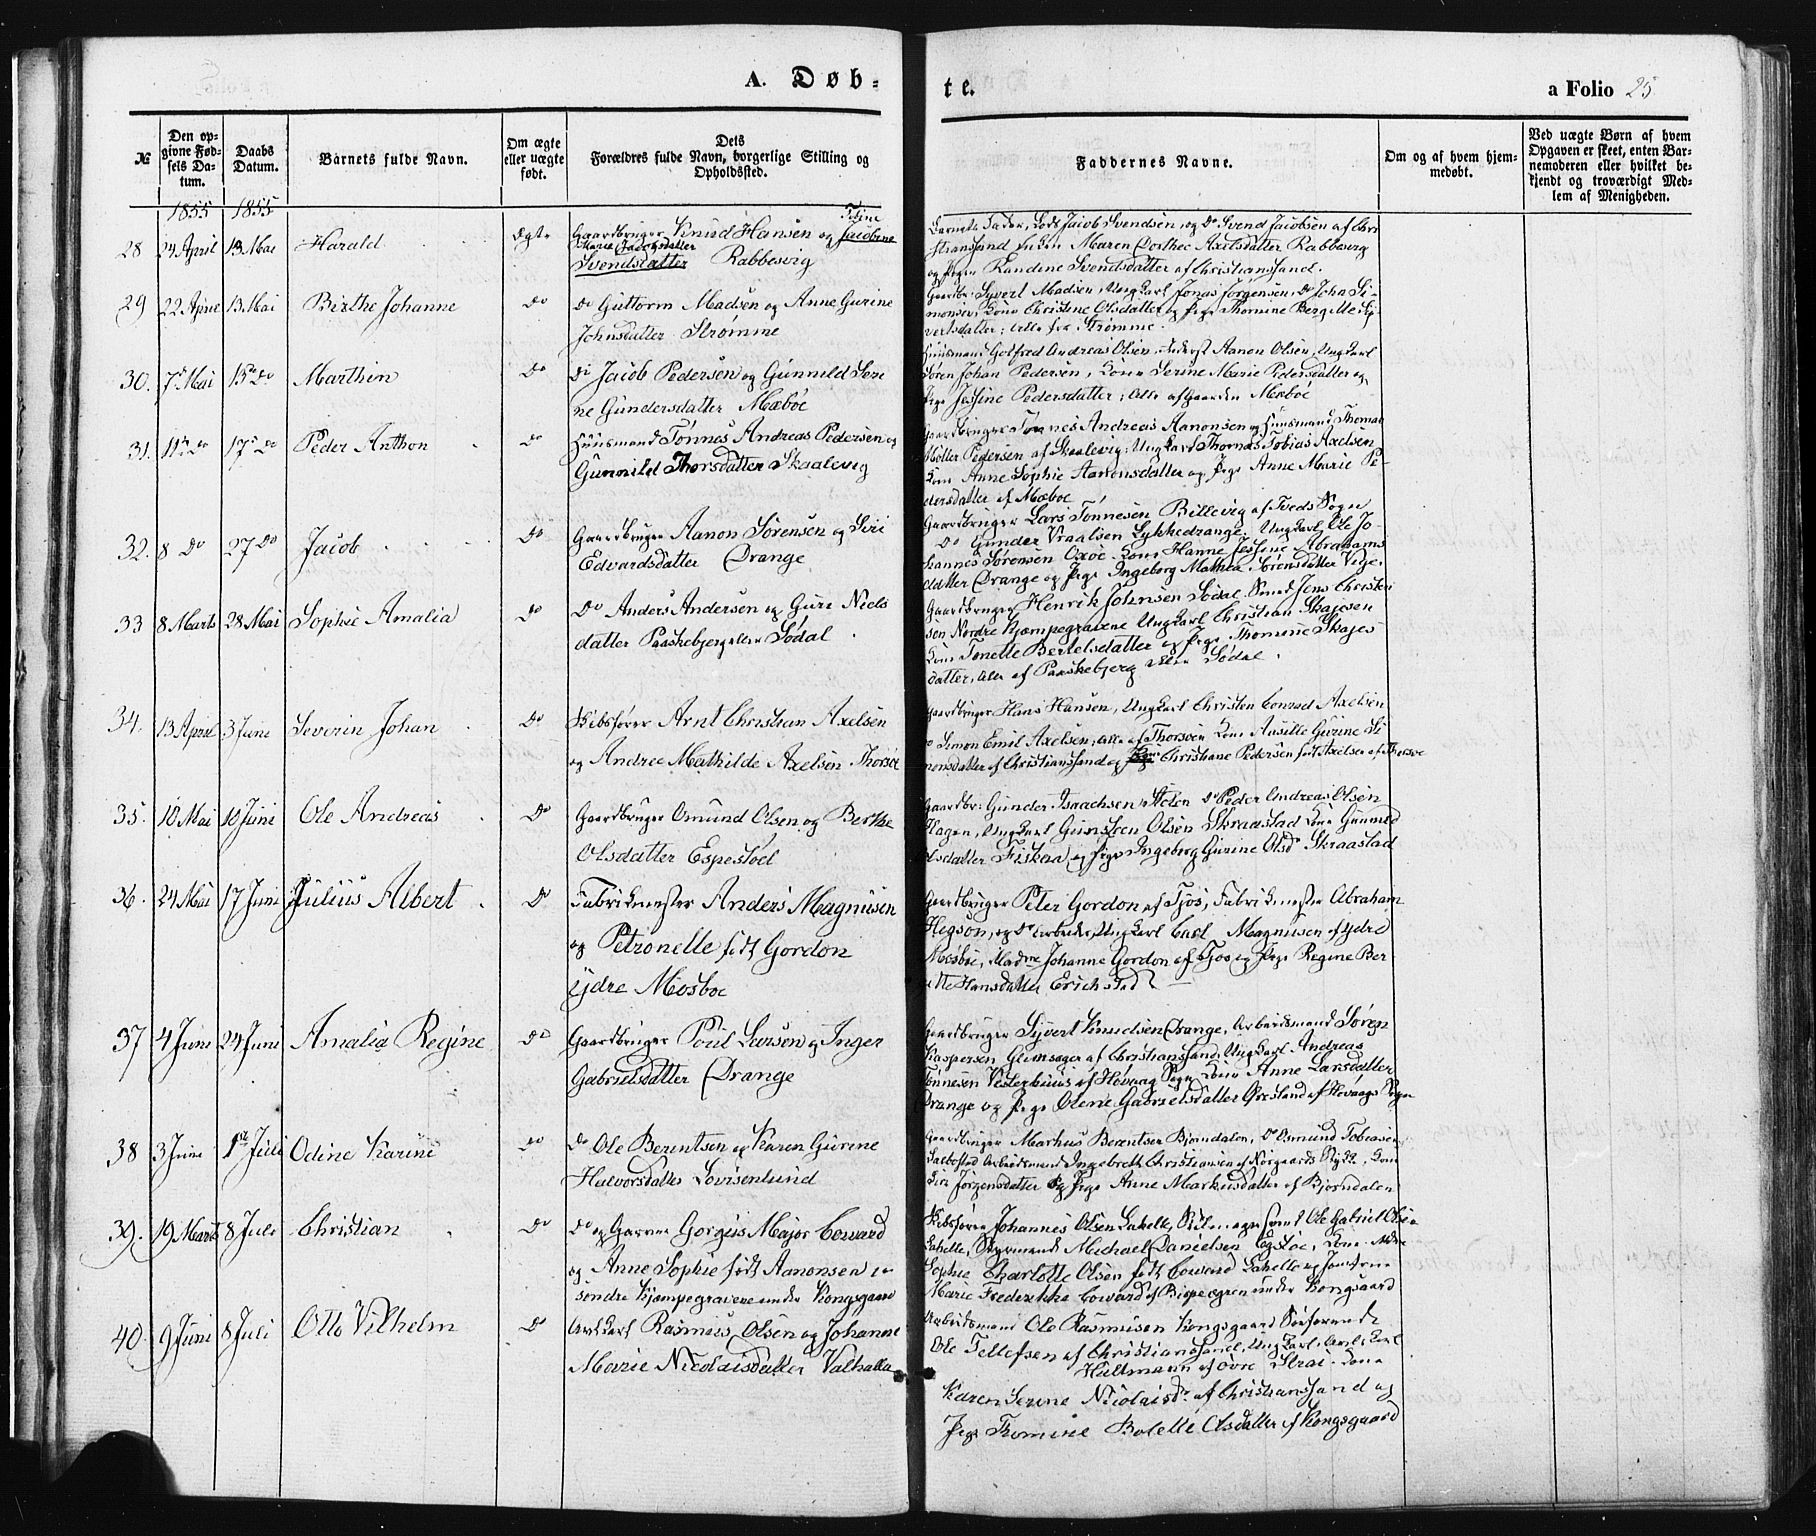 A. Døb-
te.
a Folio 25
№
Den op-
givne Fød-
sels Da-
tum.
Daabs
Datum.
Barnets fulde Navn.
Om ægte
eller uægte
født.
Dets
Forældres fulde Navn, borgerlige Stilling og
Opholdssted.
Faddernes Navne.
Om og af hvem hjem-
medøbt.
Ved uægte Børn af hvem
Opgaven er skeet, enten Bar-
nemoderen eller hvilket be-
kjendt og troværdigt Med-
lem af Menigheden.
1855 1855
28 24 April 13 Mai Harald Ægte Gaardbruger Knud Hansen og Jacobine
Svendsdatter Rabbesvig
Barnets Fader, Lods Jacob Svendsen, og Do Svend Jacobsen af Chri
stianssand Maren Dorthea Axelsdatter Rabbesvig
og Pige Randine Svendsdatter af Christianssand.
29 22 April 13 Mai Birthe Johanne Do Do Guttorm Madsen og Anne Gurine
Johnsdatter Strømme
Gaardbr: Syvert Madsen, Ungkarl Jonas Jørgensen, Do John Si-
monsen, Kone Christine Olsdatter og Pige Thomine Bergitte Sy-
vertsdatter; alle fra Strømme.
30. 7de Mai 15de Do Marthin Do Do Jacob Pedersen og Gunnild Seri
ne Gundersdatter Mæbøe
Huusmand Gotfred Andreas Olsen, Aanon Olsen, Ungkarl
Søren Johan Pedersen, Kone Serine Marie Pedersdatter og
Pige Jessine Pedersdatter; alle af Gaarden Mæbøe
31. 11te Do 17de Do Peder Anthon Do Huusmand Tønnes Andreas Pedersen og
Gunnild Thorsdatter Skaalevig
Gaardbruger Tønnes Andreas Aanonsen og Huusmand Thomas
Møller Pedersen af Skaalevig, Ungkarl Thomas Tobias Axelsen
Kone Anne Sophie Aanonsdatter og Pige Anne Marie Pe-
dersdatter af Mæbøe
32. 8 Do 27 Do Jacob Do Gaardbruger Aanon Sørensen og Siri
Edvardsdatter Drange
Gaardbruger Lars Tønnesen Billevig af Tveds Sogn
Do Gunder Vraalsen Lykkedrange, Ungkarl Ole Jo-
hannes Sørensen Oxøe, Kone Hanne Jessine Abrahams
datter Drange og Pige Ingeborg Mathea Sørensdatter Vige
33 8 Marts 28 Mai Sophie Amalia Do Do Anders Andersen og Guri Niels
datter Paaskebjerg eller Sødal
Gaardbruger Henrik Johnsen Sødal, Smed Jens Christen
sen Nordre Kjæmpegravene Ungkarl Christian Skajesen
Kone Tonette Bertelsdatter og Pige Thomine Skajes
datter, alle af Paaskebjerg eller Sødal.
34. 13 April 3 Juni Severin Johan Do Skibsfører Arnt Christian Axelsen
og Andrea Mathilde Axelsen Thorsøe
Gaardbruger Hans Hansen, Ungkarl Christen Conrad Axelsen
Do Simon Emil Axelsen, alle af Thorsøen Kone Gurine Si
monsdatter af Christianssand og Kone Christiane Pedersen født Axelsen af Thorsøe
35. 10 Mai 10 Juni Ole Andreas Do Gaardbruger Osmund Olsen og Berthe
Olsdatter Espestøel
Gaardbr: Gunder Isaachsen Do Peder Andreas Olsen
Hagen, Ungkarl Gunsteen Olsen Skraastad Kone Gunnild
Olsdatter Fiskaa og Pige Ingeborg Gurine Olsd. Skraastad
36. 24 Mai 17 Juni Julius Albert Do Fabrikmester Anders Magnusen
og Petronelle født Gordon
ydre Mosbøe
Gaardbruger Peter Gordon af Tjøs, Fabrikmester Abraham
Hegson, og Do Arbeider, Ungkarl Carl Magnusen af ydre
Mosbøe, Madme Johanne Gordon af Tjos og Pige Regine Ber
Hansdatter Erichstad
37 4 Juni 24 Juni Amalia Regine Do Gaardbruger Poul Larsen og Inger
Gabrielsdatter Drange
Gaardbruger Syvert Knudsen Drange, Arbeidsmand Søren
Kaspersen Glemsager af Christianssand, Ungkarl Andreas
Tønnesen Vesterhuus af Høvaag Sogn, Kone Anne Larsdatter
Drange og Pige Olene Gabrielsdatter af Høvaags Sogn
38 3 Juni 1ste Juli Odine Karine Do Do Ole Berentsen og Karen Gurine
Halvorsdatter Lovisenlund
Gaardbruger Markus Berentsen Bjorndalen, Do Osmund Tobiasen
Arbeidsmand Ingebreth Christiansen af Norgaards Kone
Siri Jørgensdatter og Pige Anne Markusdatter af Bjorndalen
39. 19 Marts 8 Juli Christian Do Do og Garver Gorgius Major Coward
og Anne Sophie født Aanonsen
søndre Kjæmpegravene under Kongsgaard
Skibsfører Johannes Olsen Lahelle, Ole Gabriel Olsen
Lahelle, Styrmand Michael Danielsen Kone
Sophie Charlotte Olsen født Coward Lahelle og Jomfrue
Marie Frederikke Coward af Bispegren under Kongsgaard
40. 9 Juni 8 Juli Otto Vilhelm Do Arb.karl Rasmus Olsen og Johanne
Marie Nicolaisdatter Valhalla
Arbeidsmand Ole Rasmusen Kongsgaard Søefarende
Ole Tellefsen af Christianssand, Ungkarl, Arb. Karl
Hultmann af øvre Strai. Kone
Karen Serene Nicolaisdr. af Christianssand og
Pige Thomine Bolette Olsdatter af Kongsgaard